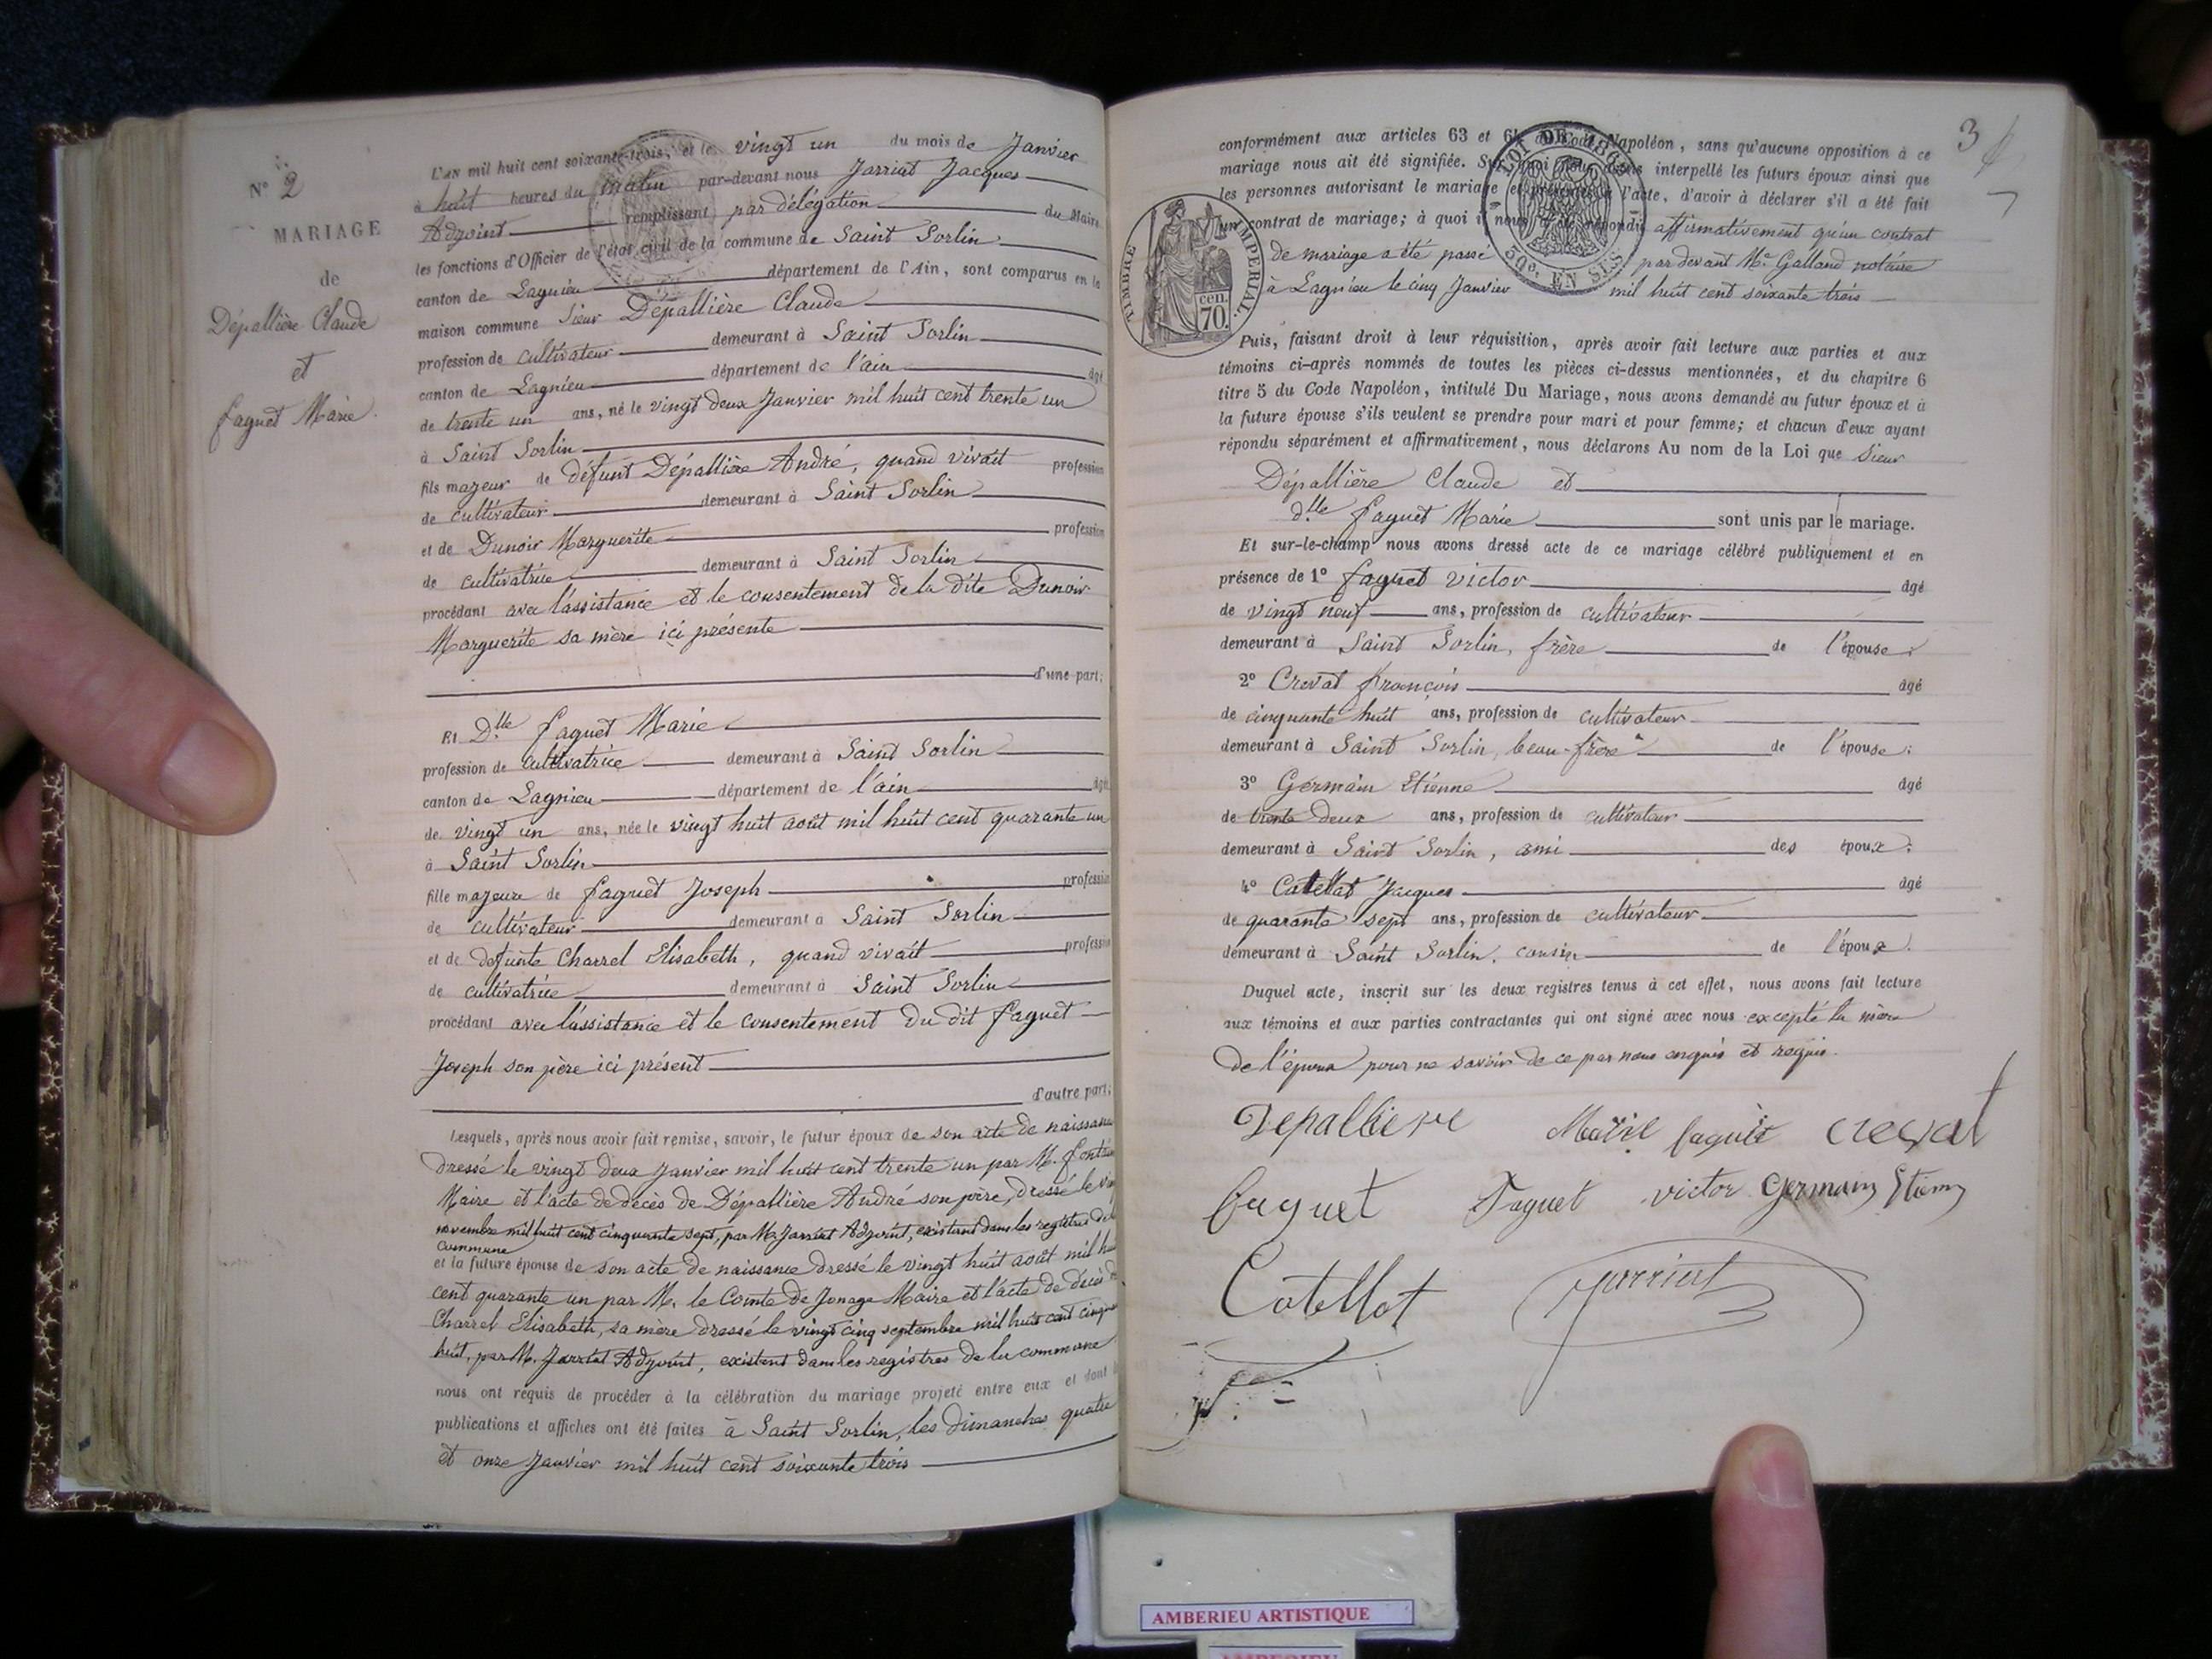 N° 2
MARIAGE
de
Dépallière Claude
et
Faguet Marie.
L'AN mil huit cent soixante-trois, et le vingt un du mois de Janvier
à huit heures du matin par-devant nous Jarriat Jacques
Adjoint remplissant par délégation du Maire
les fonctions d'Officier de l'état civil de la commune de Saint Sorlin
canton de Lagnieu département de l'Ain, sont comparus en la
maison commune Sieur Dépallière Claude
profession de cultivateur demeurant à Saint Sorlin
canton de Lagnieu département de l'ain âgé
de trente un ans, né le vingt deux Janvier mil huit cent trente un
à Saint Sorlin
fils majeur de défunt Dépallière André, quand vivait profession
de cultivateur demeurant à Saint Sorlin
et de Dunoir Marguerite profession
de cultivatrice demeurant à Saint Sorlin
procédant avec l'assistance et le consentement de la dite Dunoir
Marguerite sa mère ici présente
d'une part;
Et Dlle Faguet Marie
profession de cultivatrice demeurant à Saint Sorlin
canton de Lagnieu département de l'ain âgée
de vingt un ans, née le vingt huit août mil huit cent quarante un
à Saint Sorlin
fille majeure de Faguet Joseph profession
de cultivateur demeurant à Saint Sorlin
et de defunte Charrel Elisabeth, quand vivait profession
de cultivatrice demeurant à Saint Sorlin
procédant avec l'assistance et le consentement du dit Faguet
Joseph son père ici présent
d'autre part;
Lesquels, après nous avoir fait remise, savoir, le futur époux de son acte de naissance
dressé le vingt deux Janvier mil huit cent trente un par M.
Maire et l'acte de décès de Dépallière André son père, dressé le
novembre mil huit cent cinquante sept, par M. Jarriat Adjoint, existant dans les registres de la
commune
et la future épouse de son acte de naissance dressé le vingt huit août mil huit
cent quarante un par M. le Comte de Jonage Maire et l'acte de décès de
Charrel Elisabeth, sa mère dressé le vingt cinq septembre mil huit cent cinquante
huit, par M. Jarriat Adjoint, existent dans les registres de la commune
nous ont requis de procéder à la célébration du mariage projeté entre eux et dont les
publications et affiches ont été faites à Saint Sorlin, les dimanches quatre
et onze Janvier mil huit cent soixante trois
3
conformément aux articles 63 et 64 du Code Napoléon, sans qu'aucune opposition à ce
mariage nous ait été signifiée. Sur quoi nous avons interpellé les futurs époux ainsi que
les personnes autorisant le mariage et présentes à l'acte, d'avoir à déclarer s'il a été fait
un contrat de mariage; à quoi il nous a été répondu affirmativement qu'un contrat
de mariage a été passé par devant Me Galland notaire
à Lagnieu le cinq Janvier mil huit cent soixante trois
TIMBRE IMPERIAL
70 cen.
LOI DE 18
50c. EN SUS
Puis, faisant droit à leur réquisition, après avoir fait lecture aux parties et aux
témoins ci-après nommés de toutes les pièces ci-dessus mentionnées, et du chapitre 6
titre 5 du Code Napoléon, intitulé Du Mariage, nous avons demandé au futur époux et à
la future épouse s'ils veulent se prendre pour mari et pour femme; et chacun d'eux ayant
répondu séparément et affirmativement, nous déclarons Au nom de la Loi que Sieur
Dépallière Claude et
dlle Faguet Marie sont unis par le mariage.
Et sur-le-champ nous avons dressé acte de ce mariage célébré publiquement et en
présence de 1° Faguet Victor âgé
de vingt neuf ans, profession de cultivateur
demeurant à Saint Sorlin, frère de l'épouse;
2° Crevat François âgé
de cinquante huit ans, profession de cultivateur
demeurant à Saint Sorlin, beau-frère de l'épouse;
3° Germain Etienne âgé
de trente deux ans, profession de cultivateur
demeurant à Saint Sorlin, ami des époux;
4° Catellat Jacques âgé
de quarante sept ans, profession de cultivateur
demeurant à Saint Sorlin, cousin de l'époux.
Duquel acte, inscrit sur les deux registres tenus à cet effet, nous avons fait lecture
aux témoins et aux parties contractantes qui ont signé avec nous excepté la mère
de l'époux pour ne savoir de ce par nous enquis et requis.
Depalliere Marie faguet Crevat
faguet Faguet victor Germain Etienne
Catellat Jarriat
AMBERIEU ARTISTIQUE
AMBERIEU